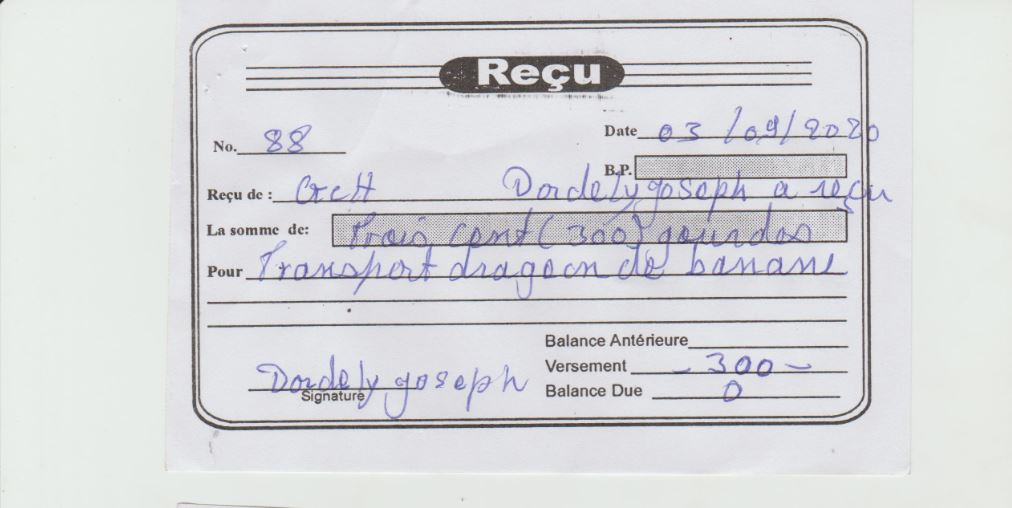 Reçu
No. 88
Date 03/09/2020
B.P.
Reçu de : Dordely goseph a reçu
La somme de: Trois cent (300) gourdes
Pour Transport drageon de banane
Balance Antérieure
Versement - 300 -
Balance Due 0
Dordely goseph
Signature